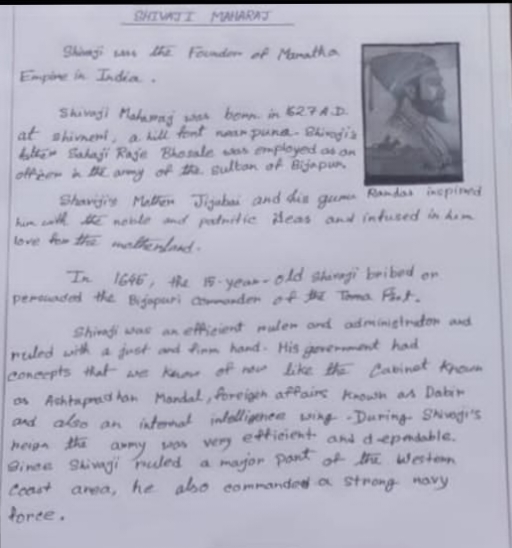 SHIVAJI MAHARAJ
Shivaji was the Founder of Maratha
Empire in India.
Shivaji Maharaj was born in 1627 A.D.
at shivneri, a hill fort near pune. Shivaji's
father Sahaji Raje Bhosale was employed as an
officer in the army of the sultan of Bijapur.
Shavaji's Mother Jijabai and his guru Ramdas inspired
him with the noble and patriotic ideas and infused in him
love for the motherland.
In 1646, the 15-year-old Shivaji bribed or
persuaded the Bijapuri commander of the Torna Fort.
Shivaji was an efficient ruler and administrator and
ruled with a just and firm hand. His government had
concepts that we know of now like the Cabinet known
as Ashtapradhan Mandal, foreign affairs known as Dabir
and also an internal intelligence wing. During Shivaji's
reign the army was very efficient and depndable.
Since Shivaji ruled a major part of the Western
Coast area, he also commanded a strong navy
force.